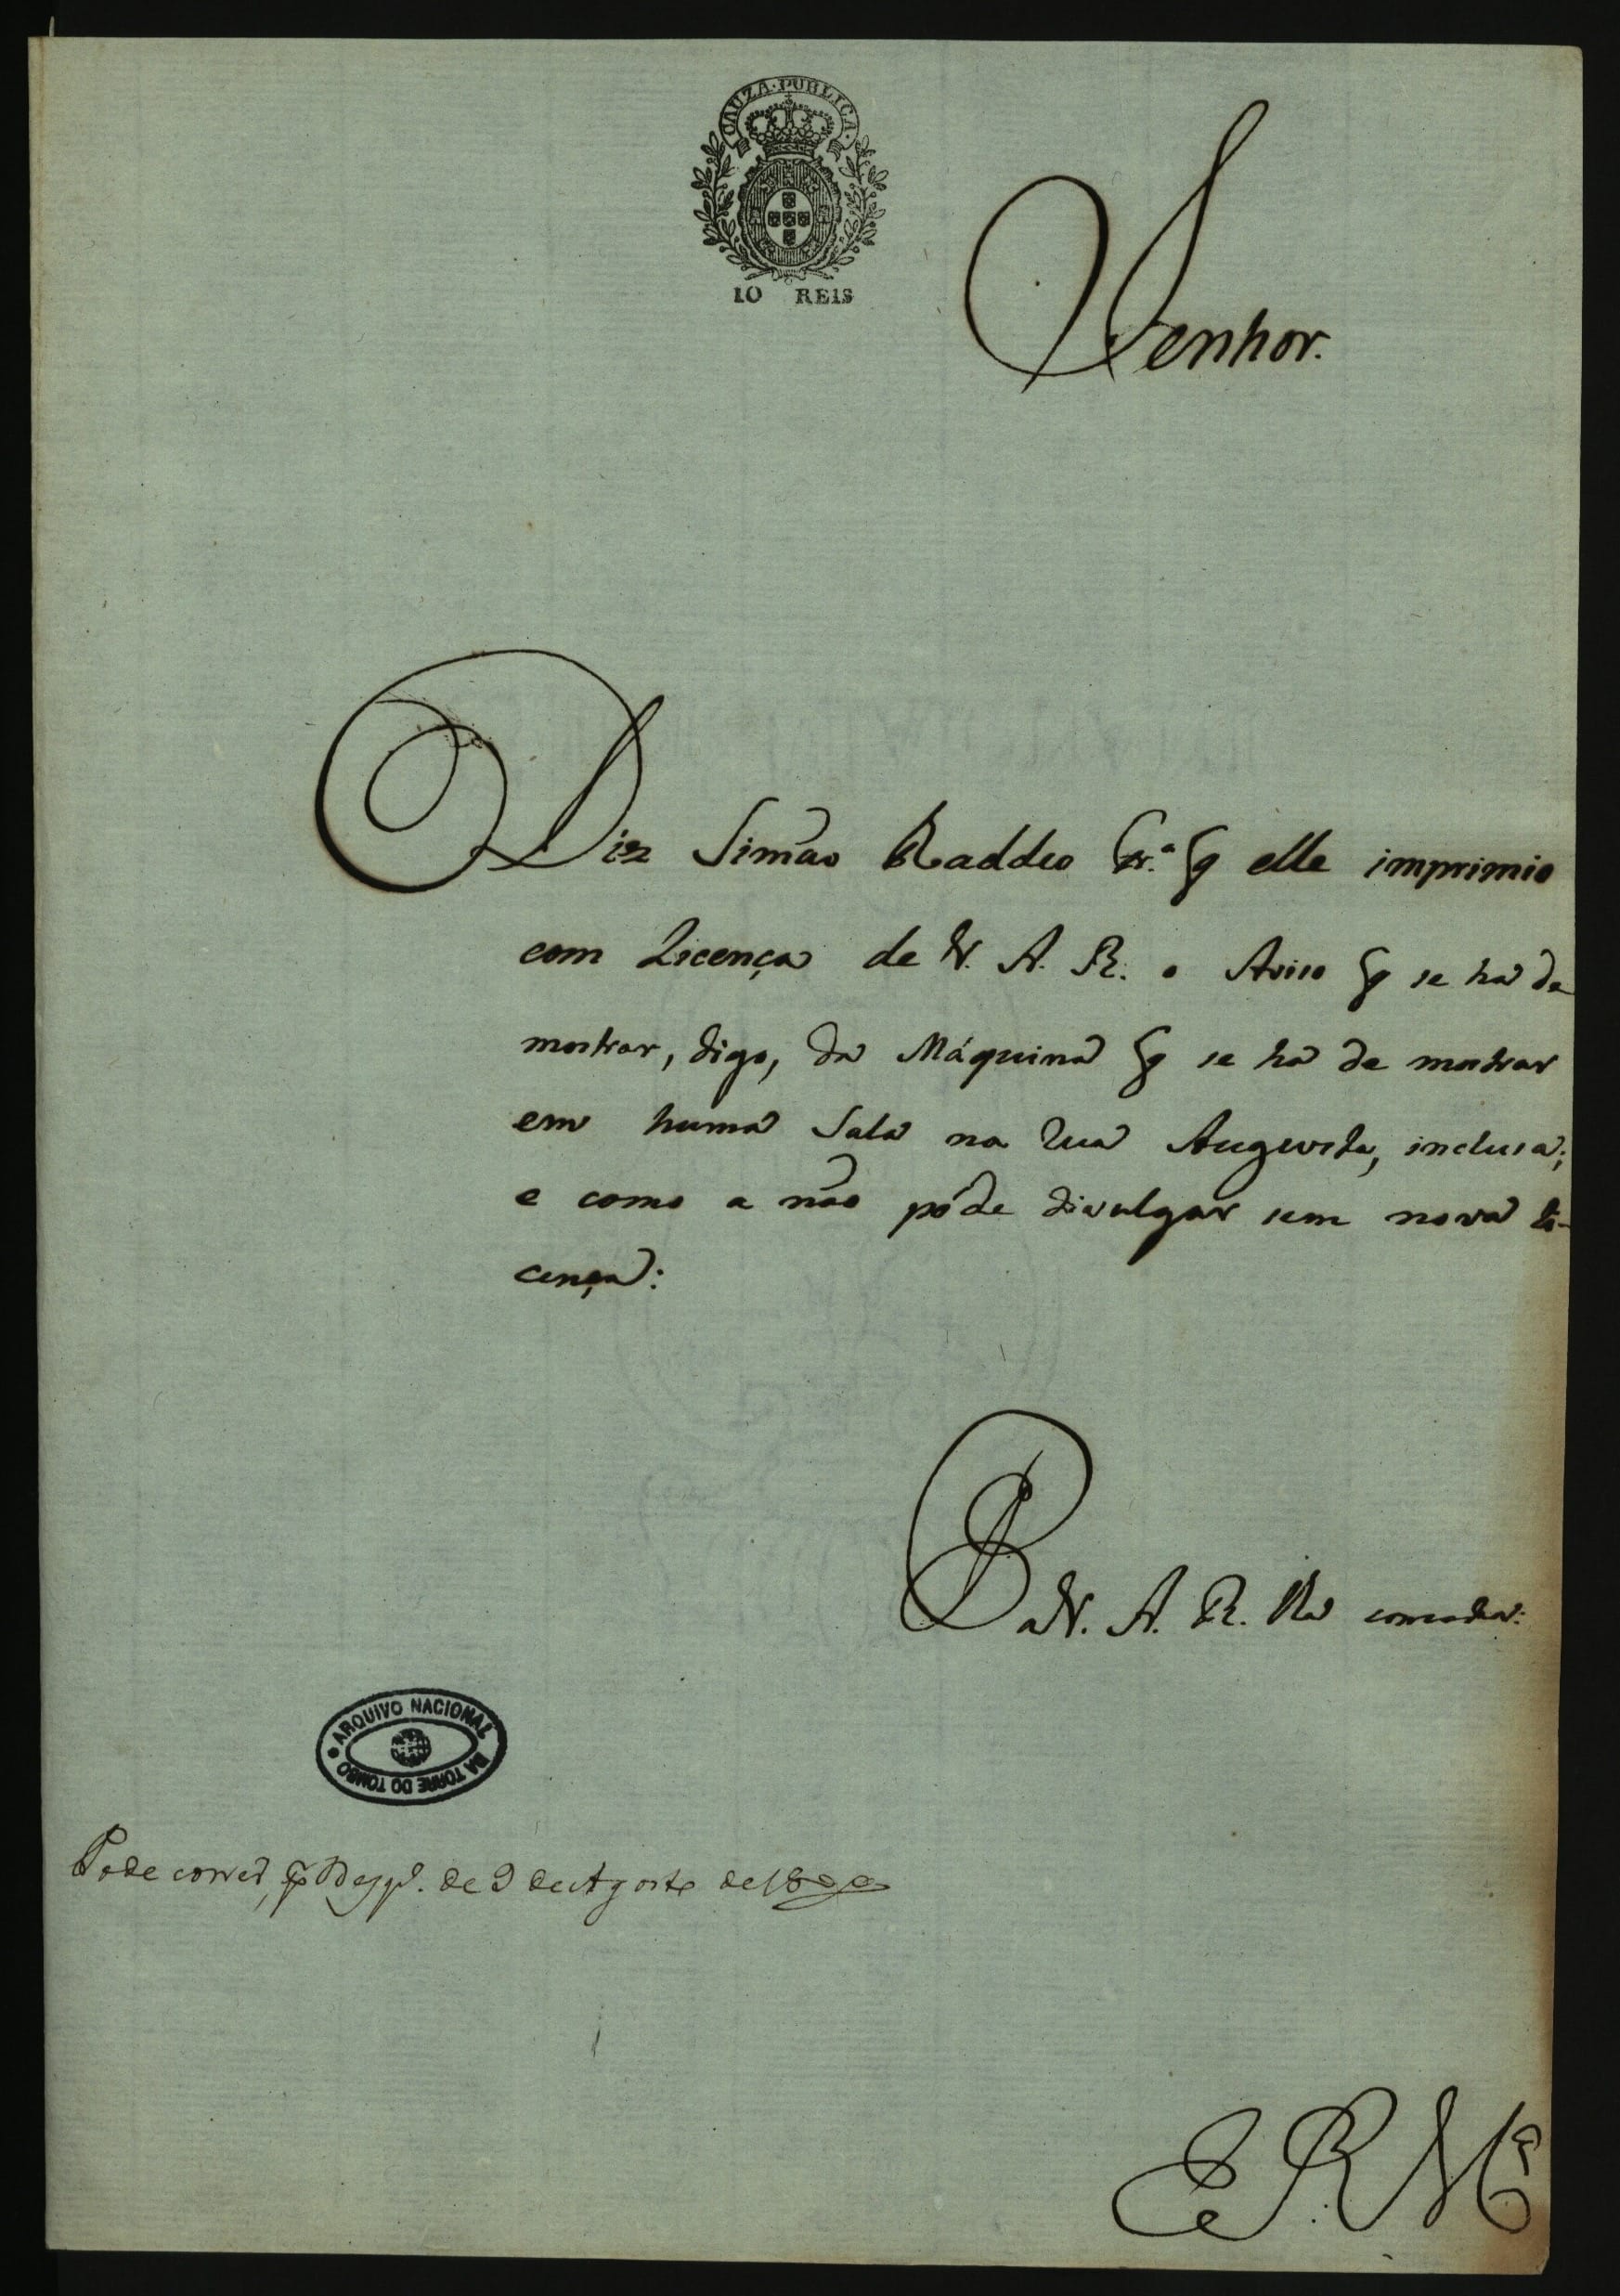 CAUZA·PUBLICA·
10 REIS
Senhor.
Diz Simão Raddeo Ferr.ª q elle imprimio
com Licença de V. A. R. o Aviso q se ha de
mostrar, digo, da Máquina q se ha de mostrar
em huma Sala na Rua Augusta, inclusa;
e como a não póde divulgar sem nova li-
cença:
P. a V. A. R. lha conceda:
ARQUIVO NACIONAL
DA TORRE DO TOMBO
Pode correr, de 9 de Agosto de 1800
E. R. M.ce